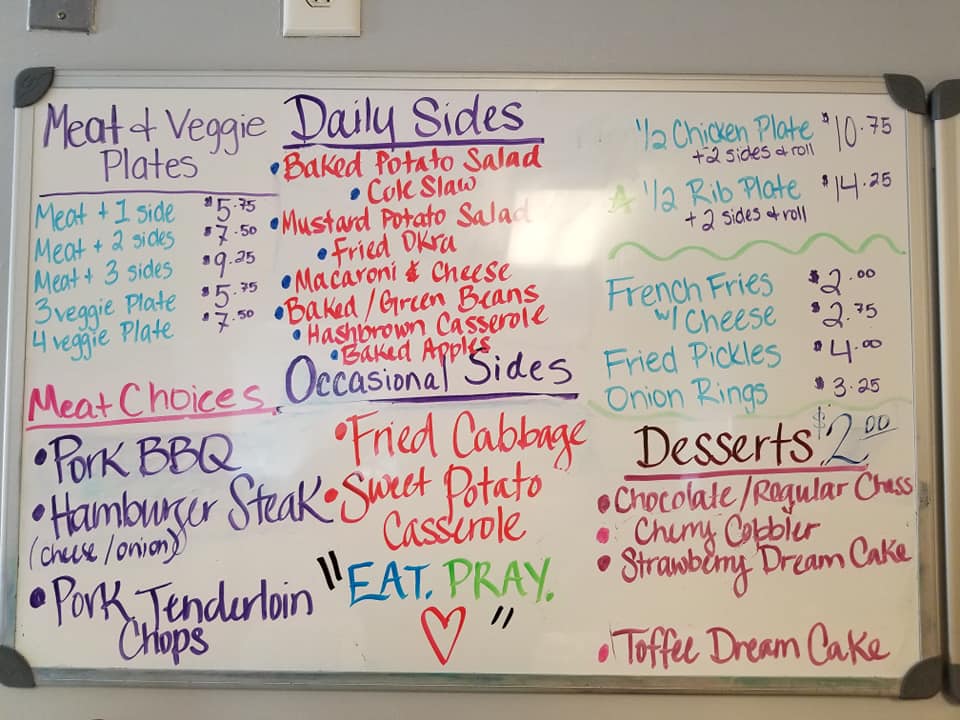 Meat & Veggie
Plates
Meat + 1 side $5.75
Meat + 2 sides $7.50
Meat + 3 sides $9.25
3 veggie Plate $5.75
4 veggie Plate $7.50
Meat Choices
• Pork BBQ
• Hamburger Steak
(cheese/onion)
• Pork Tenderloin
Chops
Daily Sides
• Baked Potato Salad
• Cole Slaw
• Mustard Potato Salad
• Fried Okra
• Macaroni & Cheese
• Baked/Green Beans
• Hashbrown Casserole
• Baked Apples
Occasional Sides
• Fried Cabbage
• Sweet Potato
Casserole
"EAT. PRAY.
♡"
1/2 Chicken Plate $10.75
+2 sides & roll
1/2 Rib Plate $14.25
+ 2 sides & roll
French Fries $2.00
w/ Cheese $2.75
Fried Pickles $4.00
Onion Rings $3.25
Desserts $2.00
• Chocolate/Regular Chess
• Cherry Cobbler
• Strawberry Dream Cake
• Toffee Dream Cake